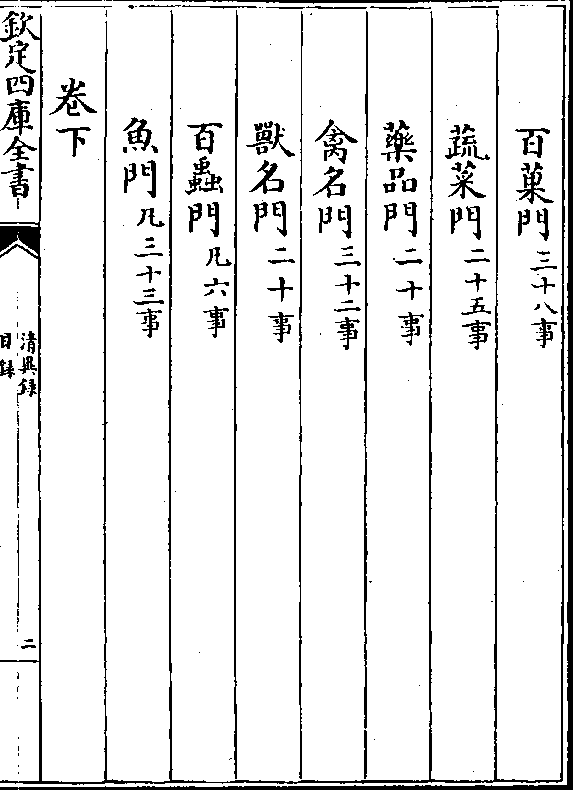 百菓門三十八事
蔬菜門二十五事
藥品門二十事
禽名門三十二事
獸名門二十事
百蟲門凡六事
魚門凡三十三事
卷下
欽定四庫全書
清異録
目録
二